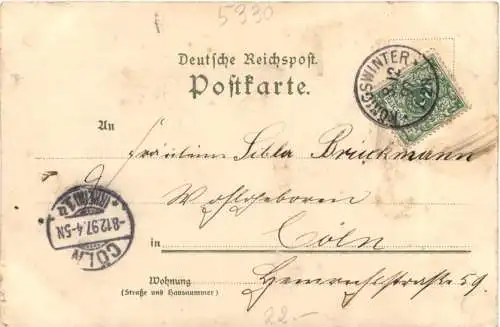 5330
Deutsche Reichspost.
Postkarte.
KÖNIGSWINTER
An
Fräulein Sibla Bruckmann
Wohlgeboren
in Cöln
Heinrichsstraße 59.
Wohnung
(Straße und Hausnummer)
CÖLN
-8.12.97.4-5N
22.-